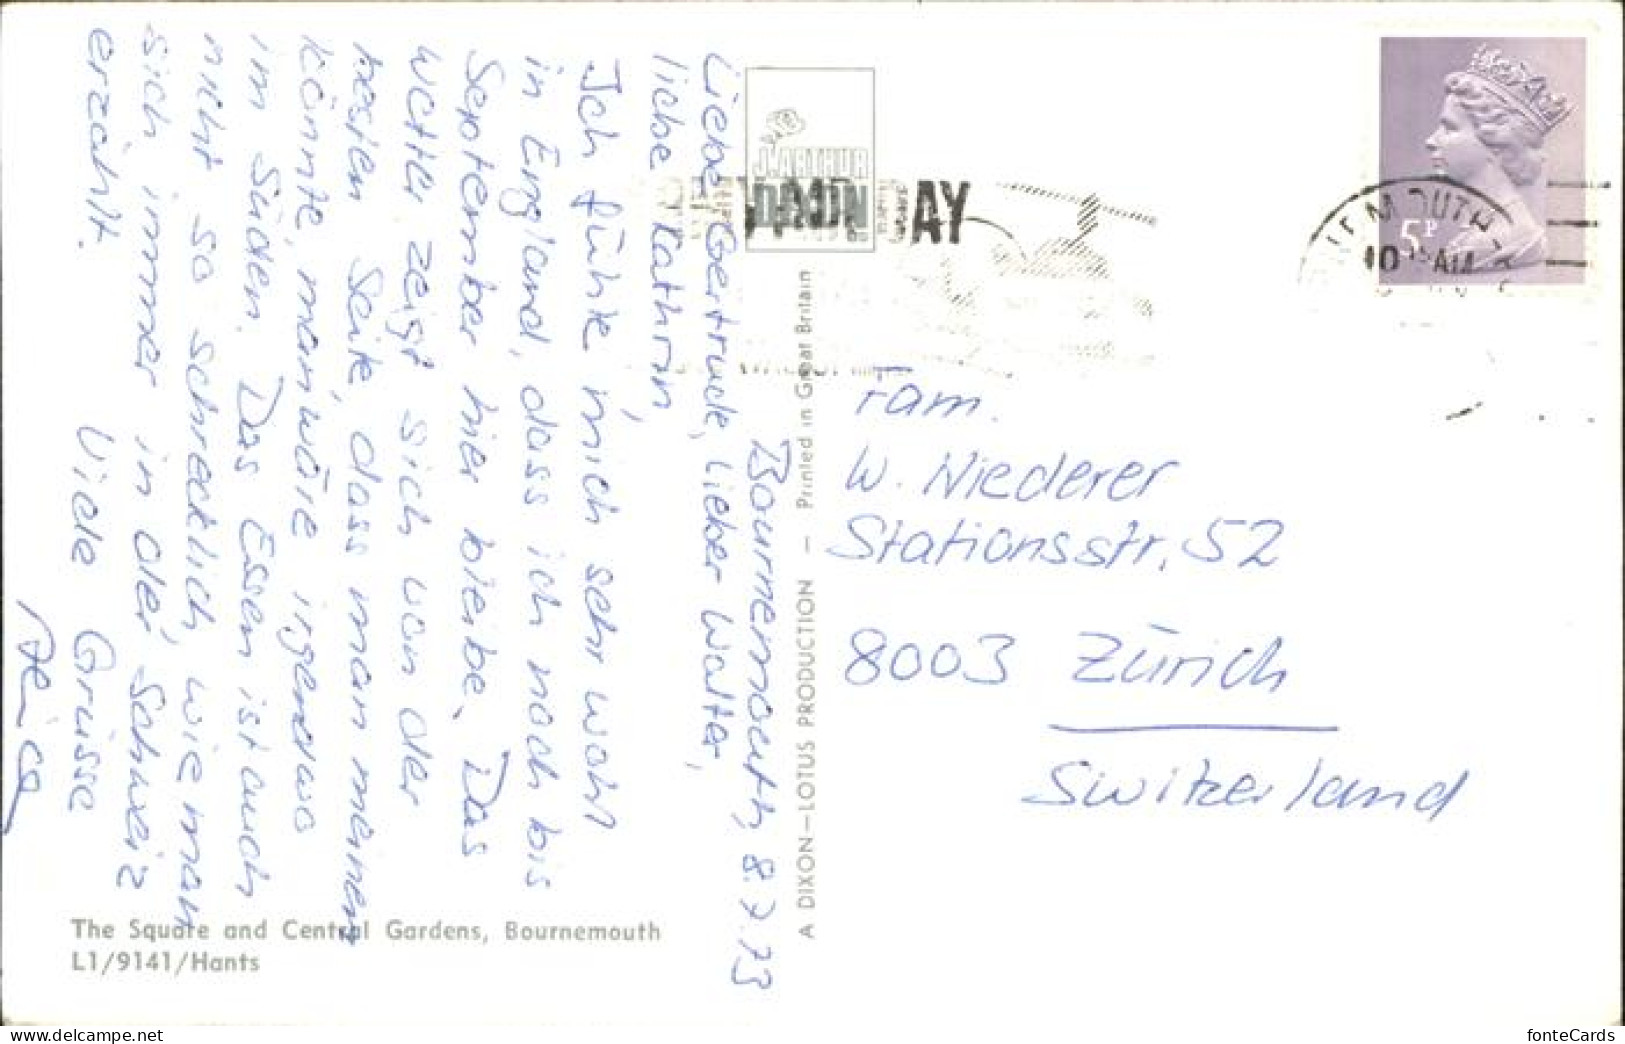 Bournemouth, 8.7.73
Liebe Gertruck, Lieber Walter,
liebe Kathrin
Ich fühle mich sehr wohl
in England, dass ich noch bis
September hier bleibe. Das
Wetter zeigt sich von der
besten Seite, dass man meinen
könnte, man wäre irgendwo
im Süden. Das Essen ist auch
nicht so schrecklich, wie man
sich immer in der Schweiz
erzählt.
Viele Grüsse
The Square and Central Gardens, Bournemouth
L1/9141/Hants
J. ARTHUR
DIXON
A DIXON—LOTUS PRODUCTION — Printed in Great Britain
5P
10 AM
Fam.
W. Niederer
Stationsstr. 52
8003 Zürich
Switzerland
fonteCards
www.delcampe.net